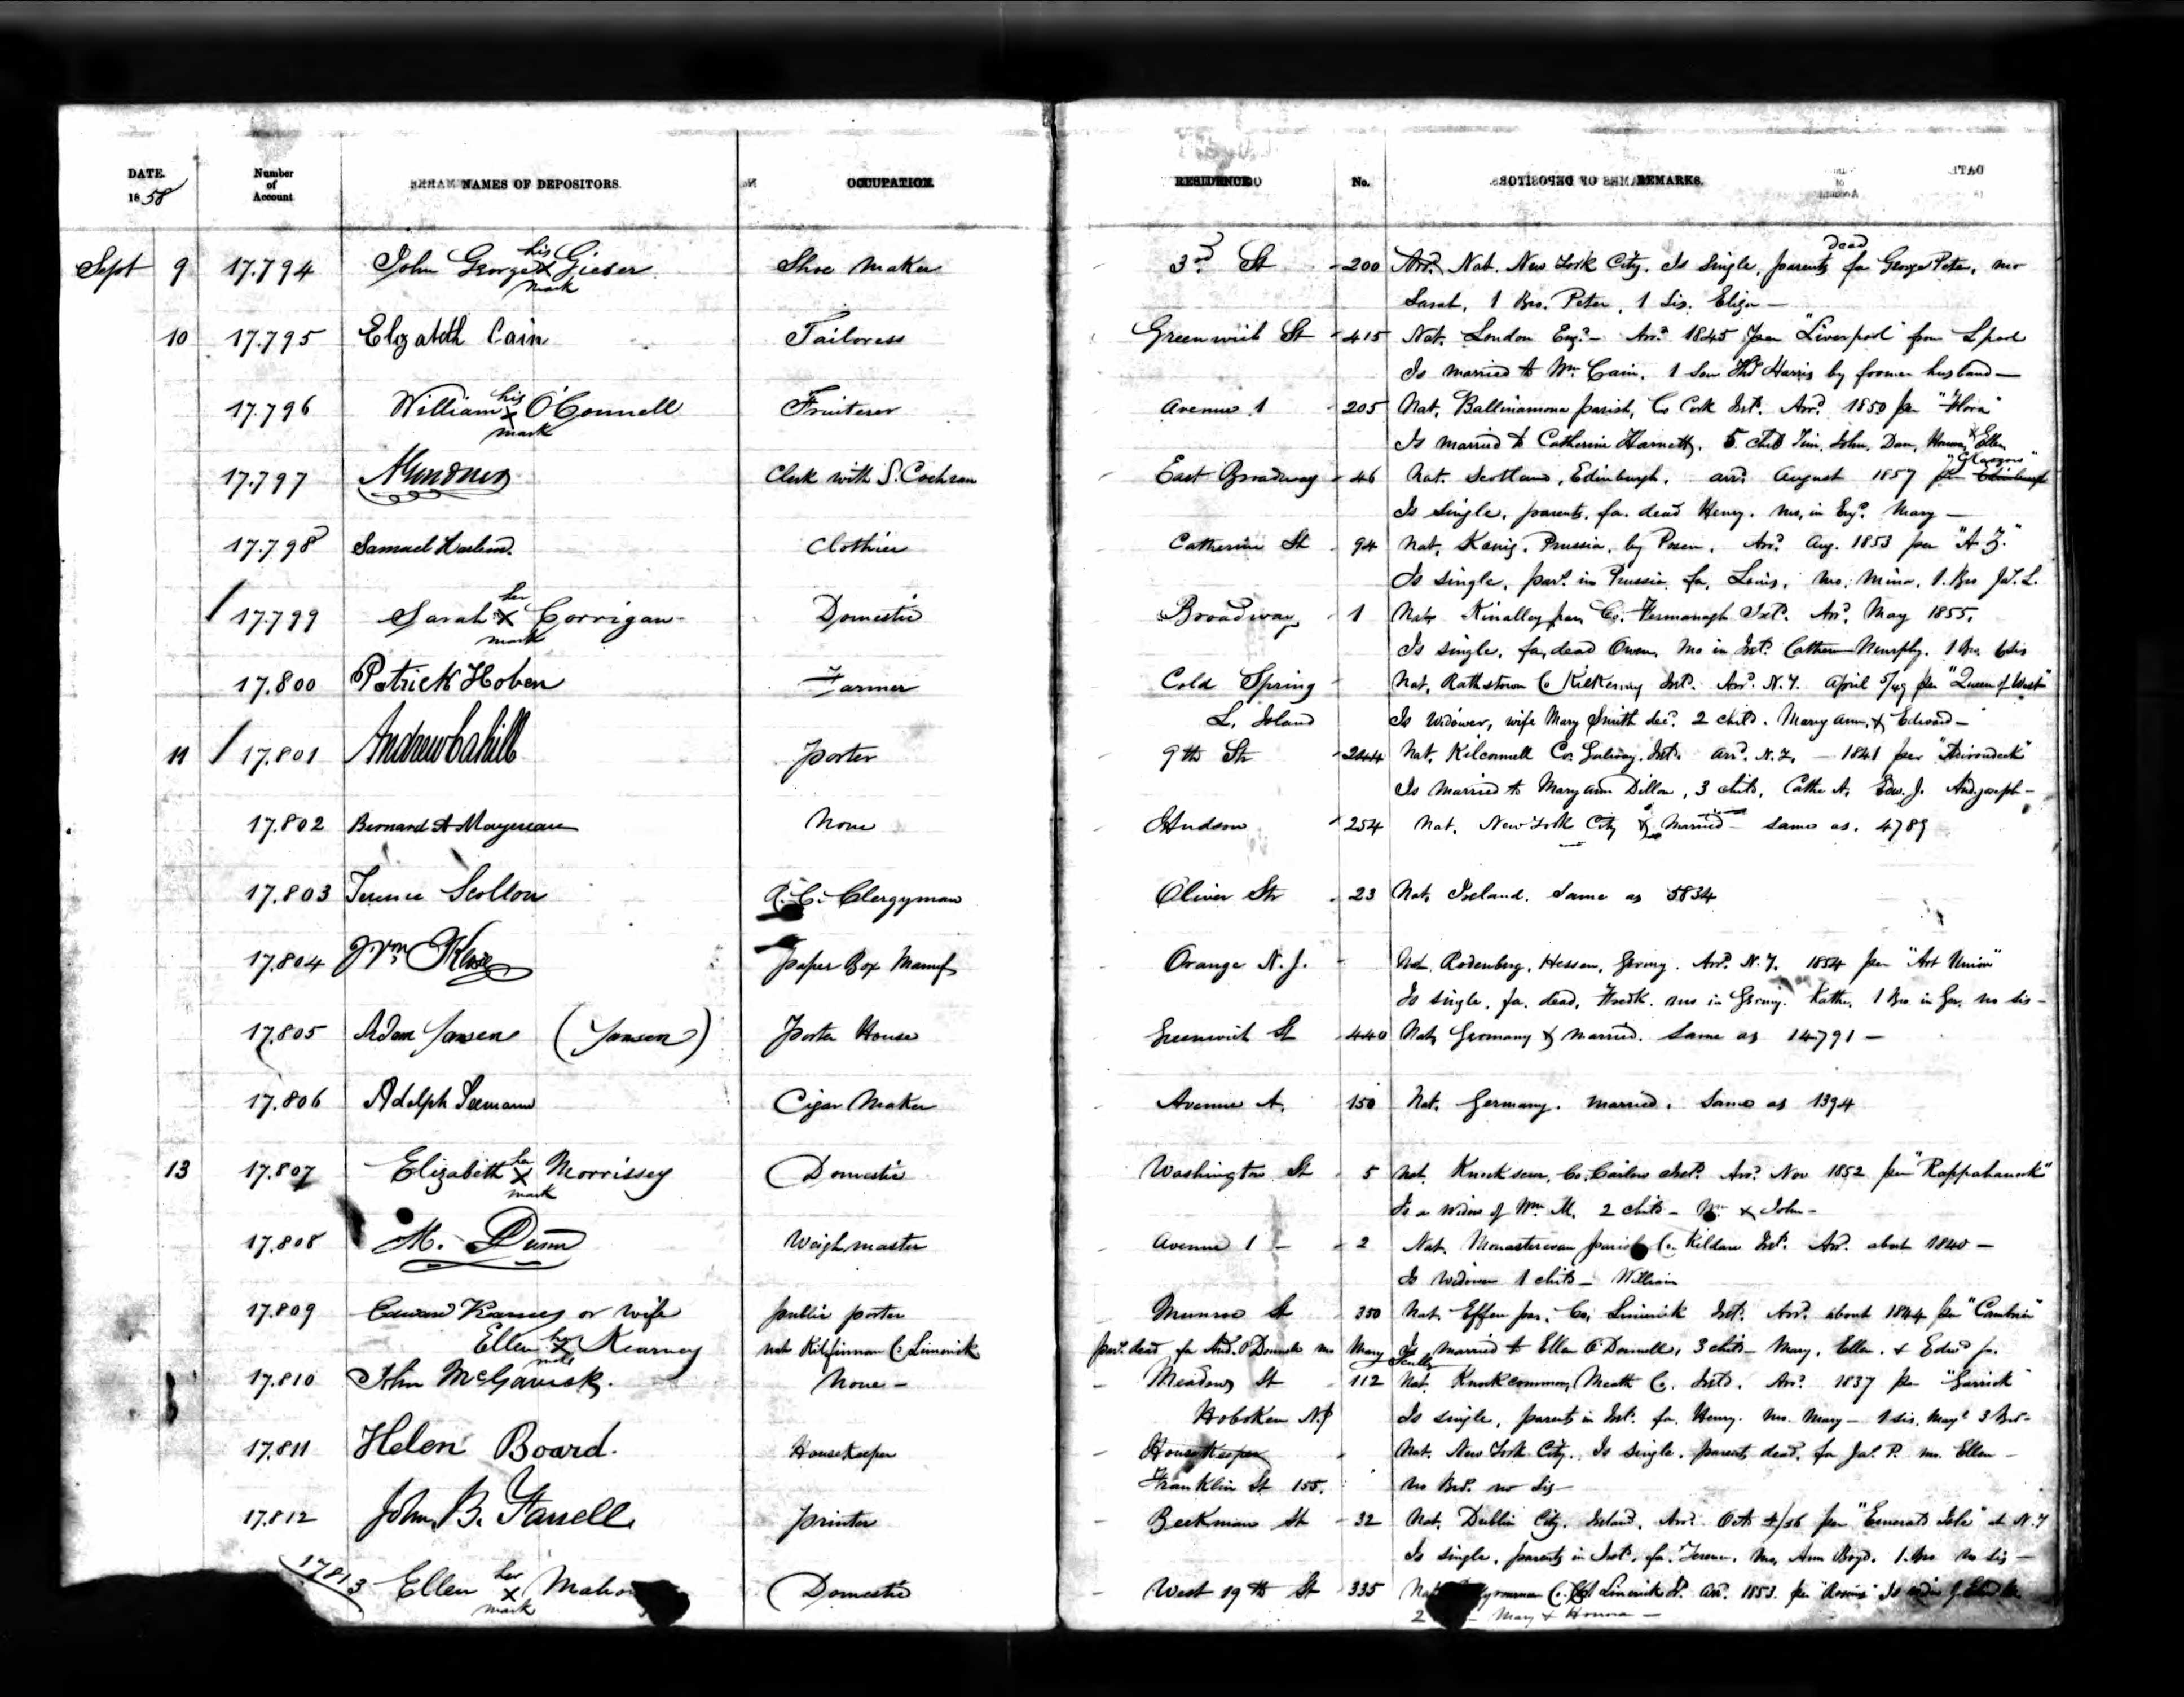 DATE. 1858
Number of Account
NAMES OF DEPOSITORS.
OCCUPATION.
RESIDENCE
No.
REMARKS.
Sept 9 17.794 John George his x mark Gieser Shoe Maker 3rd St 200 Nat. New York City. Is Single, parents dead fa George Peter, mo
Sarah, 1 Bro. Peter, 1 Sis. Eliza —
10 17.795 Elizabeth Cain Tailoress Greenwich St 415 Nat. London Engd — Arrd 1845 per "Liverpool" from Lpool
Is married to Wm Cain, 1 Son Thos Harris by former husband —
17.796 William his x mark O'Connell Fruiterer Avenue 1 205 Nat. Ballinamona parish, Co Cork Ireld. Arrd 1850 per "Flora"
Is married to Catherine Harnett, 5 child Tim, John, Dan, Honora & Ellen
17.797 Clerk with S. Cochran East Broadway 46 Nat. Scotland, Edinburgh, arrd August 1857 per "Glasgow"
Is Single, parents, fa. dead Henry. mo, in Engd. Mary —
17.798 Samuel Clothier Catherine St 94 Nat. Prussia, by Posen, Arrd Aug. 1853 per "A.Z."
Is single, part. in Prussia fa, Louis, mo. Mina, 1 Bro
17.799 Sarah her x mark Corrigan Domestic Broadway 1 Nat. Kinalley par, Co. Fermanagh Ireld. Arrd May 1855,
Is single, fa, dead Owen, Mo in Ireld. Catherine Murphy. 1 Bro, 6 Sis
17.800 Patrick Hoben Farmer Cold Spring Nat, Rathstown Co Kilkenny Ireld. Arrd. N.Y. April 5/49 per "Queen of West"
L. Island Is Widower, wife Mary Smith decd. 2 childs. Mary Ann, & Edward —
11 17.801 Andrew Cahill Porter 9th St 244 Nat. Kilconnell Co. Galway. Ireld. Arrd. N.Y. — 1841 per "Adirondack"
Is Married to Mary Ann Dillon, 3 childs, Cathe A. Edw. J. And. Joseph —
17.802 Bernard A None Hudson 254 Nat. New York City & Married — same as. 4789
17.803 Terence Scollon R. C. Clergyman Oliver St 23 Nat. Ireland. Same as 5834
17.804 Paper Box Manuf Orange N.J. Nat. Rodenberg, Hessen, Germy. Arrd. N.Y. 1854 per "Art Union"
Is single, fa. dead, Fredk. mo in Germy. Kathe. 1 Bro in Ger. no sis —
17.805 Adam Jansen (Jansen) Porter House Greenwich St 440 Nat, Germany & Married. Same as 14791 —
17.806 Adolph Seemann Cigar Maker Avenue A. 150 Nat. Germany. Married. Same as 1394
13 17.807 Elizabeth her x mark Morrissey Domestic Washington St 5 Nat. Co. Carlow Ireld. Arrd. Nov 1852 per "Rappahanock"
Is a widow of Wm M. 2 childs — Wm & John —
17.808 M. Dunn Weigh master Avenue 1 — 2 Nat. Monasterevan parish Co. Kildare Ireld. Arrd. about 1840 —
Is Widower 1 child — William
17.809 Edward Kearney or wife public porter Munroe St 350 Nat. Effen par. Co. Limerick Ireld. Arrd. about 1844 per "Cambria"
Ellen her x mark Kearney nat Kilfinnan Co Limerick par. dead fa And. O'Donnell mo Mary Scully Is married to Ellen O'Donnell, 3 childs — Mary, Ellen. & Edwd
17.810 John McGavisk. None — Meadow St 112 Nat. Knockcommon, Meath Co. Ireld. Arrd. 1837 per "Garrick"
Hoboken N.J Is single, parents in Ireld. fa. Henry. mo. Mary — 1 sis. 3 Bros —
17.811 Helen Board. Housekeeper Housekeeper Nat. New York City. Is Single. parents dead, fa Jas. P. mo. Ellen —
Franklin St 155. no Bro. no Sis —
17.812 John, B. Farrell Printer Beekman St 32 Nat. Dublin City, Ireland, Arrd. Oct 4/56 per "Emerald Isle" at N.Y
Is single, parents in Ireld. fa. Terence, mo, Ann Boyd. 1 Bro no Sis —
17813 Ellen her x mark Domestic West 19th St 335 Limerick Arrd. 1853. per
2 — Mary & Honora —